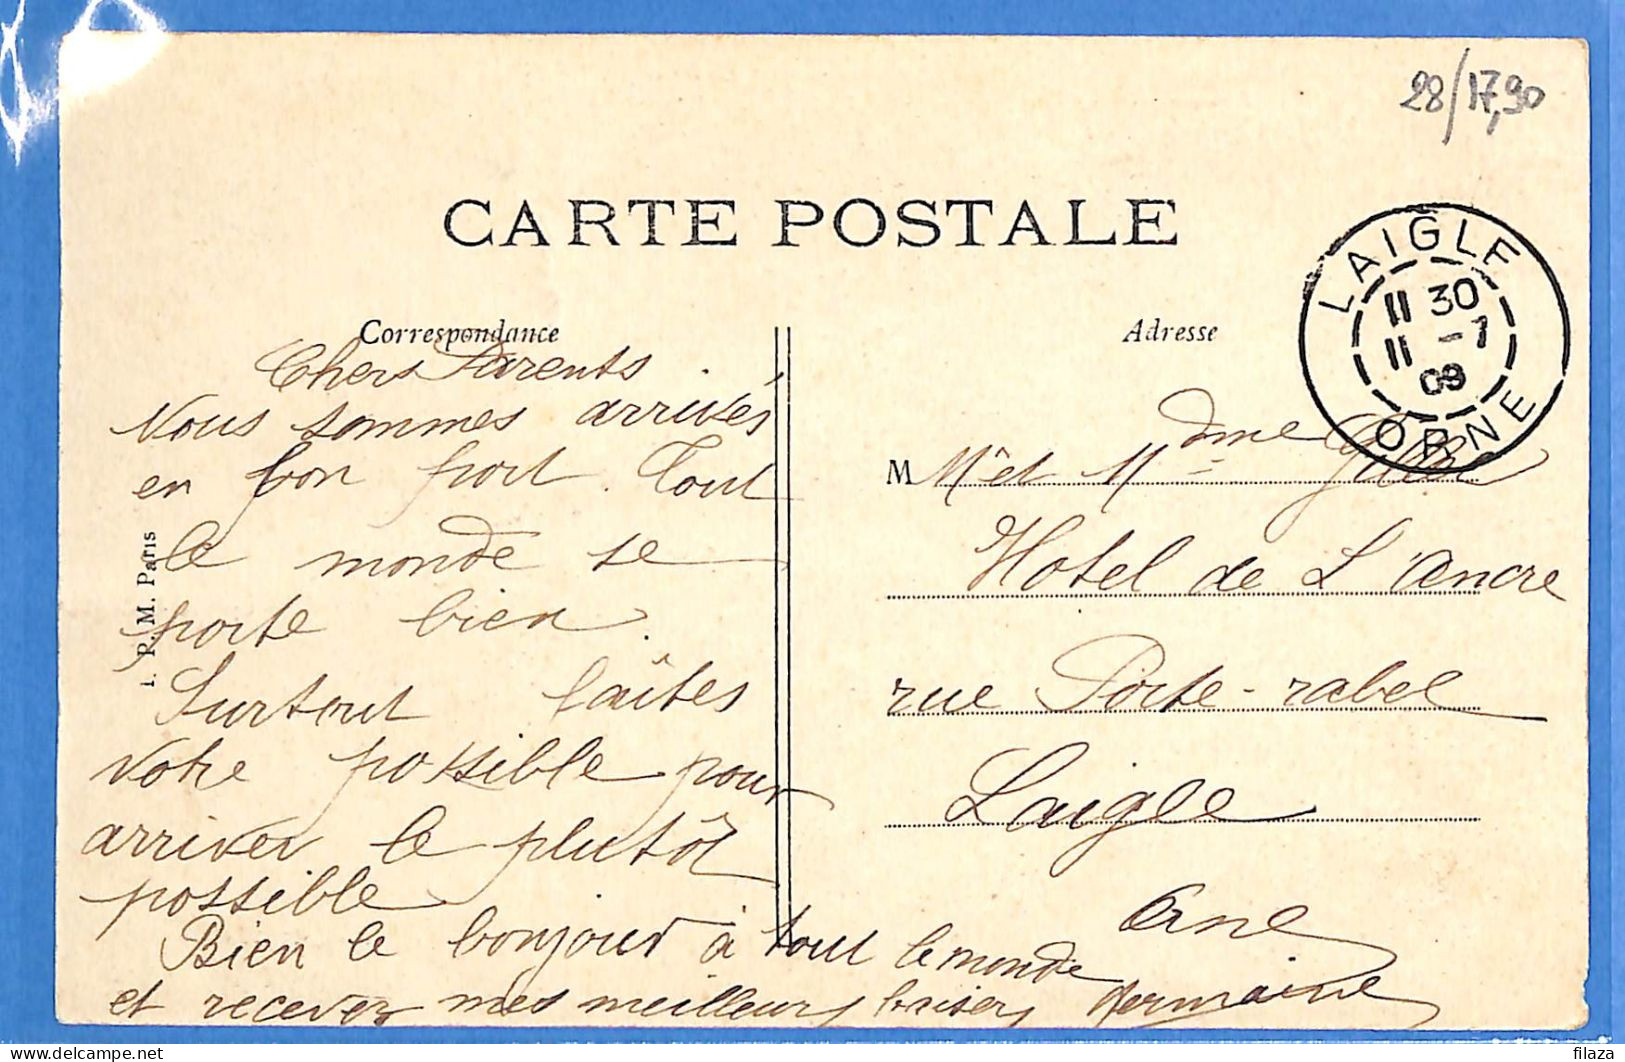 28/17,90
CARTE POSTALE
Correspondance
Chers Parents
Nous sommes arrivés
en bon port. Tout
le monde se
porte bien.
Surtout faîtes
votre possible pour
arriver le plutôt
possible
Bien le bonjour à tout le monde
et recevez mes meilleurs baisers Germaine
I. P. M. Paris
Adresse
LAIGLE
11 30
11 -7
09
ORNE
M M et Mme
Hotel de L'Ancre
rue Porte-rabel
Laigle
Orne
delcampe.net
filaza